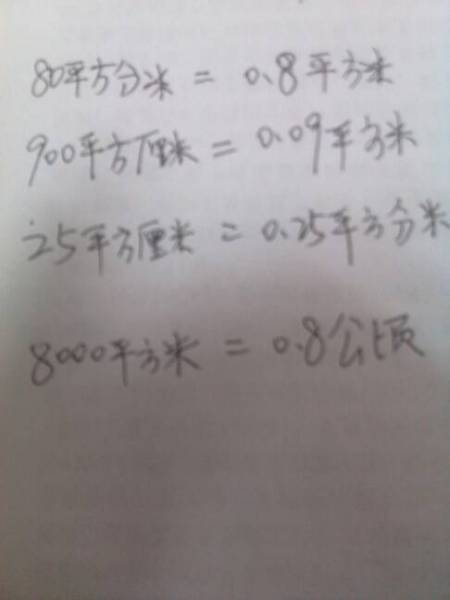 80平方分米 = 0.8平方米
900平方厘米 = 0.09平方米
25平方厘米 = 0.25平方分米
8000平方米 = 0.8公顷